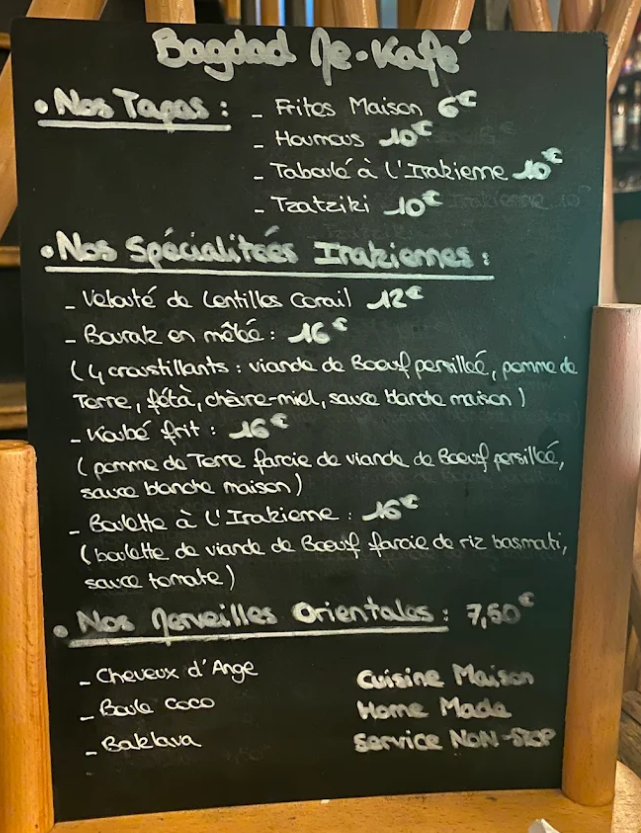 Bagdad Je-Kafé
• Nos Tapas : - Frites Maison 6€
- Houmous 10€
- Taboulé à l'Irakieme 10€
- Tzatziki 10€
• Nos Spécialiteés Irakiemes :
- Velouté de Lentilles Corail 12€
- Bourak en mêbé : 16€
(4 croustillants : viande de Boeuf persilleé, pomme de
Terre, fétà, chèvre-miel, sauce blanche maison)
- Koubé frit : 16€
(pomme de Terre farcie de viande de Boeuf persilleé,
sauce blanche maison)
- Boulette à l'Irakieme : 16€
(boulette de viande de Boeuf farcie de riz basmati,
sauce tomate)
• Nos Merveilles Orientales : 7,50€
- Cheveux d'Ange
- Boule Coco
- Baklava
Cuisine Maison
Home Made
Service NON-STOP